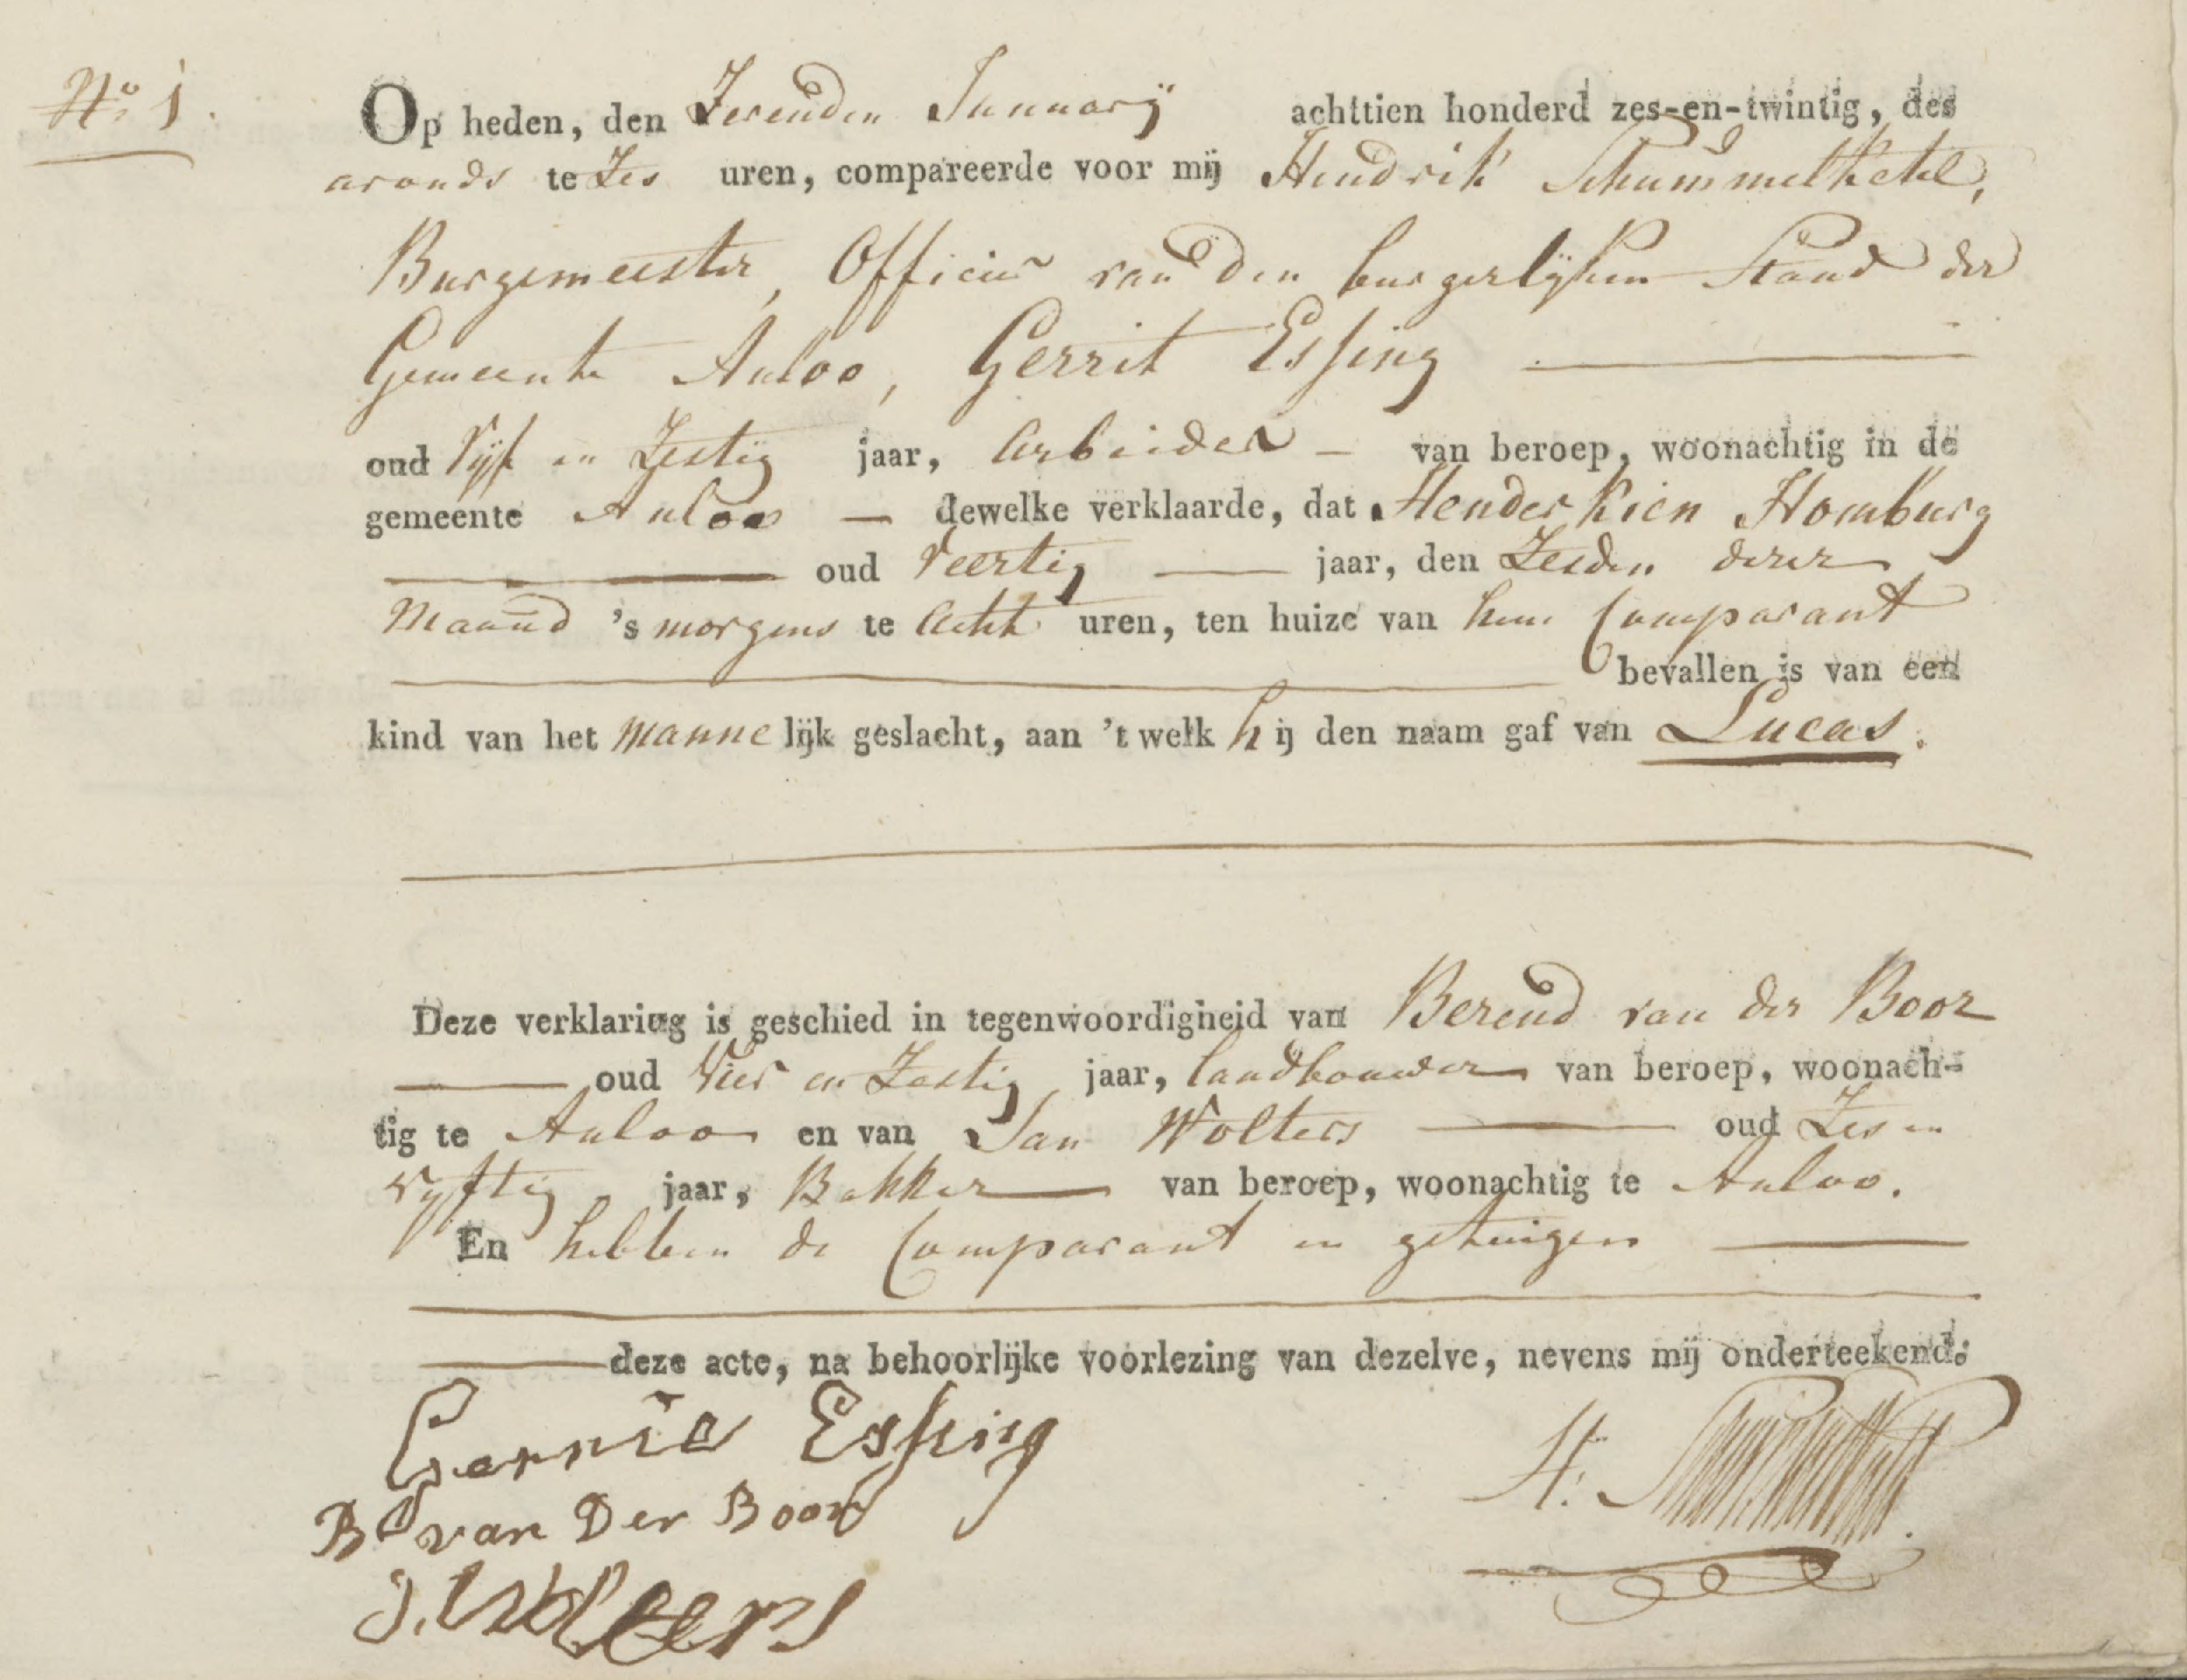 No 1.
Op heden, den Zevenden Januarij achttien honderd zes-en-twintig, des
avonds te Zes uren, compareerde voor mij Hendrik Schummelketel,
Burgemeester, Officier van den burgerlijken Stand der
Gemeente Anloo, Gerrit Essing
oud Vijf en Zestig jaar, Arbeider van beroep, woonachtig in de
gemeente Anloo dewelke verklaarde, dat Henderkien Homburg
oud Veertig jaar, den Zesden dezer
Maand 's morgens te Acht uren, ten huize van hem Comparant
bevallen is van een
kind van het mannelijk geslacht, aan 't welk hij den naam gaf van Lucas.
Deze verklaring is geschied in tegenwoordigheid van Berend van der Boor
oud Vier en Zestig jaar, landbouwer van beroep, woonach-
tig te Anloo en van Jan Wolters oud Zes en
Vyftig jaar, Bakker van beroep, woonachtig te Anloo.
En hebben de Comparant en getuigen
deze acte, na behoorlijke voorlezing van dezelve, nevens mij onderteekend.
Essing
H.
B van Der Boor
J. Wolters